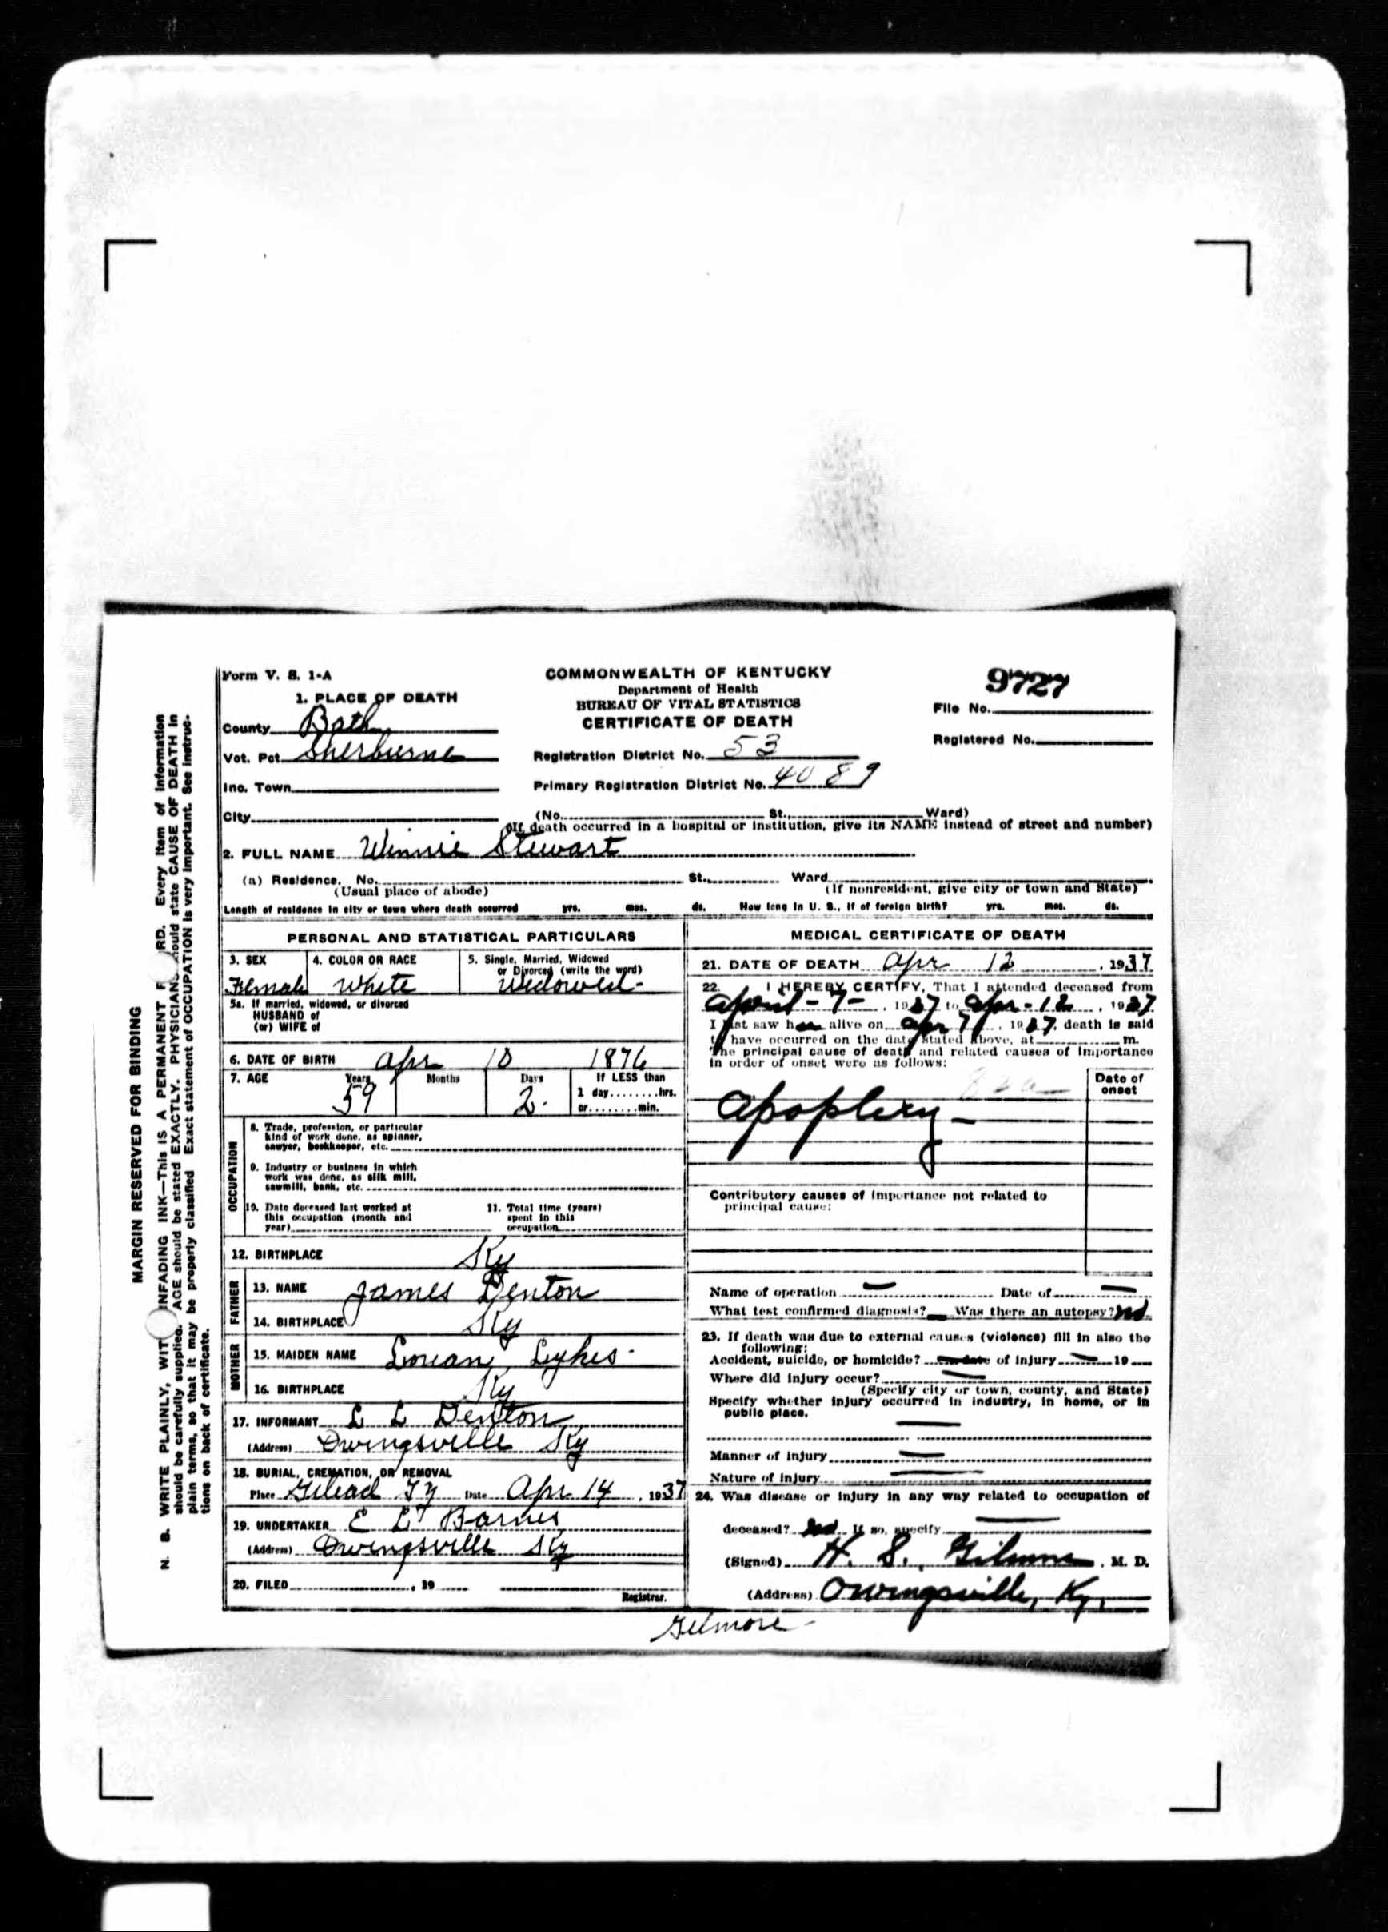 Form V. S. 1-A
COMMONWEALTH OF KENTUCKY
Department of Health
BUREAU OF VITAL STATISTICS
CERTIFICATE OF DEATH
9727
File No.
Registered No.
1. PLACE OF DEATH
County Bath
Vot. Pct Sherburne
Inc. Town
City
Registration District No. 53
Primary Registration District No. 4089
(No. St., Ward)
(If death occurred in a hospital or institution, give its NAME instead of street and number)
2. FULL NAME Winnie Stewart
(a) Residence. No. St., Ward
(Usual place of abode) (If nonresident, give city or town and State)
Length of residence in city or town where death occurred yrs. mos. ds. How long in U. S., if of foreign birth? yrs. mos. ds.
PERSONAL AND STATISTICAL PARTICULARS
3. SEX 4. COLOR OR RACE 5. Single, Married, Widowed
or Divorced (write the word)
Female White Widowed
5a. If married, widowed, or divorced
HUSBAND of
(or) WIFE of
6. DATE OF BIRTH Apr 10 1876
7. AGE Years Months Days If LESS than
59 2 1 day hrs.
or min.
OCCUPATION
8. Trade, profession, or particular
kind of work done, as spinner,
sawyer, bookkeeper, etc.
9. Industry or business in which
work was done, as silk mill,
sawmill, bank, etc.
10. Date deceased last worked at
this occupation (month and
year)
11. Total time (years)
spent in this
occupation
12. BIRTHPLACE Ky
FATHER
13. NAME James Denton
14. BIRTHPLACE Ky
MOTHER
15. MAIDEN NAME Lykes
16. BIRTHPLACE Ky
17. INFORMANT L L Denton
(Address) Owingsville Ky
18. BURIAL, CREMATION, OR REMOVAL
Place Gilead Date Apr 14, 1937
19. UNDERTAKER E L Barnes
(Address) Owingsville Ky
20. FILED , 19
Registrar.
MEDICAL CERTIFICATE OF DEATH
21. DATE OF DEATH Apr 12, 1937
22. I HEREBY CERTIFY, That I attended deceased from
April - 7 -, 1937 to Apr - 12, 1937
I last saw h alive on Apr 7, 1937, death is said
to have occurred on the date stated above, at m.
The principal cause of death and related causes of importance
in order of onset were as follows:
Date of
onset
Apoplexy -
Contributory causes of importance not related to
principal cause:
Name of operation — Date of —
What test confirmed diagnosis? — Was there an autopsy? No
23. If death was due to external causes (violence) fill in also the
following:
Accident, suicide, or homicide? — date of injury — 19
Where did injury occur? —
(Specify city or town, county, and State)
Specify whether injury occurred in industry, in home, or in
public place.
Manner of injury —
Nature of injury —
24. Was disease or injury in any way related to occupation of
deceased? No If so, specify —
(Signed) H. S. Gilmore, M. D.
(Address) Owingsville, Ky.
Gilmore
MARGIN RESERVED FOR BINDING
N. B. WRITE PLAINLY, WIT INFADING INK—This IS A PERMANENT RD. Every item of information
should be carefully supplied. AGE should be stated EXACTLY. PHYSICIAN should state CAUSE OF DEATH in
plain terms, so that it may be properly classified. Exact statement of OCCUPATION is very important. See instruc-
tions on back of certificate.